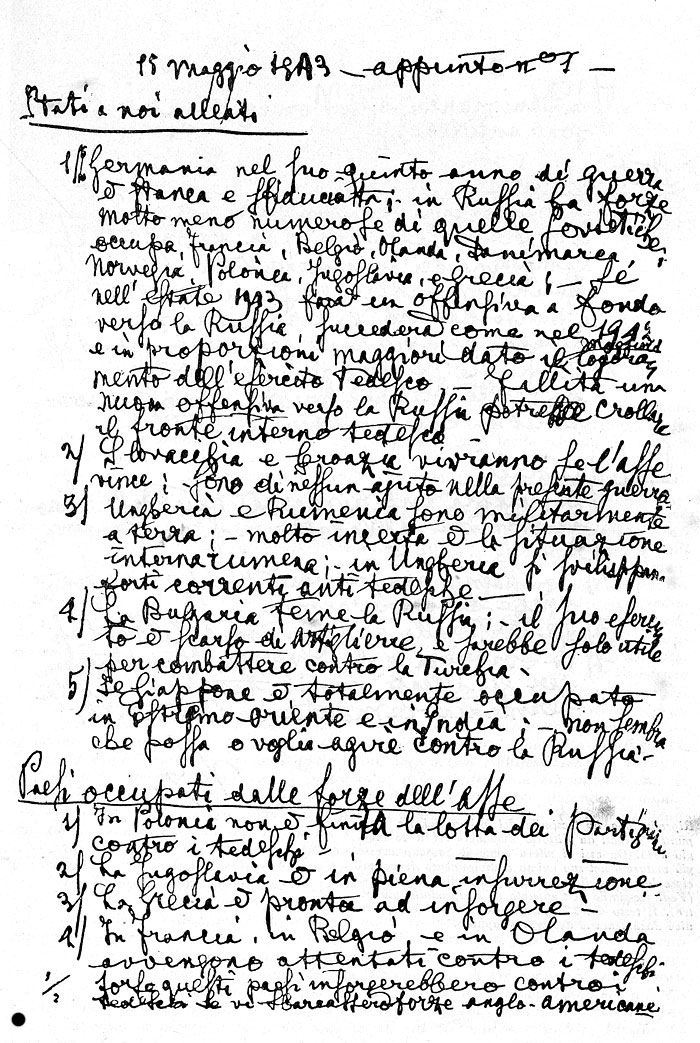 15 Maggio 1943 — appunto n° 1 —
Stati a noi alleati
1) Germania nel suo quinto anno di guerra
è stanca e sfiduciata; - in Russia ha forze
molto meno numerose di quelle sovietiche;
occupa Francia, Belgio, Olanda, Danimarca,
Norvegia, Polonia, Jugoslavia, e Grecia; - Se
nell'estate 1943 farà un offensiva a fondo
verso la Russia, succederà come nel 194
e in proporzioni maggiori dato il maggiore logora-
mento dell'esercito Tedesco - Fallita una
nuova offensiva verso la Russia potrebbe crollare
il fronte interno tedesco -
2) Slovacchia e Croazia vivranno se l'asse
vince; sono di nessun aiuto nella presente guerra
3) Ungheria e Rumenia sono militarmente
a terra; - molto incerta è la situazione
interna rumena; - in Ungheria si sviluppan-
forti correnti anti tedesche —
4) La Bulgaria teme la Russia; - il suo eserci-
to è scarso di artiglierie, e sarebbe solo utile
per combattere contro la Turchia.
5) Il Giappone è totalmente occupato
in estremo oriente e in India; - non sembra
che possa o voglia agire contro la Russia -
Paesi occupati dalle forze dell'asse
1) In Polonia non è finita la lotta dei partigiani
contro i tedeschi -
2) La Jugoslavia è in piena insurrezione
3) La Grecia è pronta ad insorgere -
4) In Francia, in Belgio e in Olanda
avvengono attentati contro i tedeschi -
forse questi paesi insorgerebbero contro i
tedeschi se vi sbarcassero forze anglo-americane
1/2